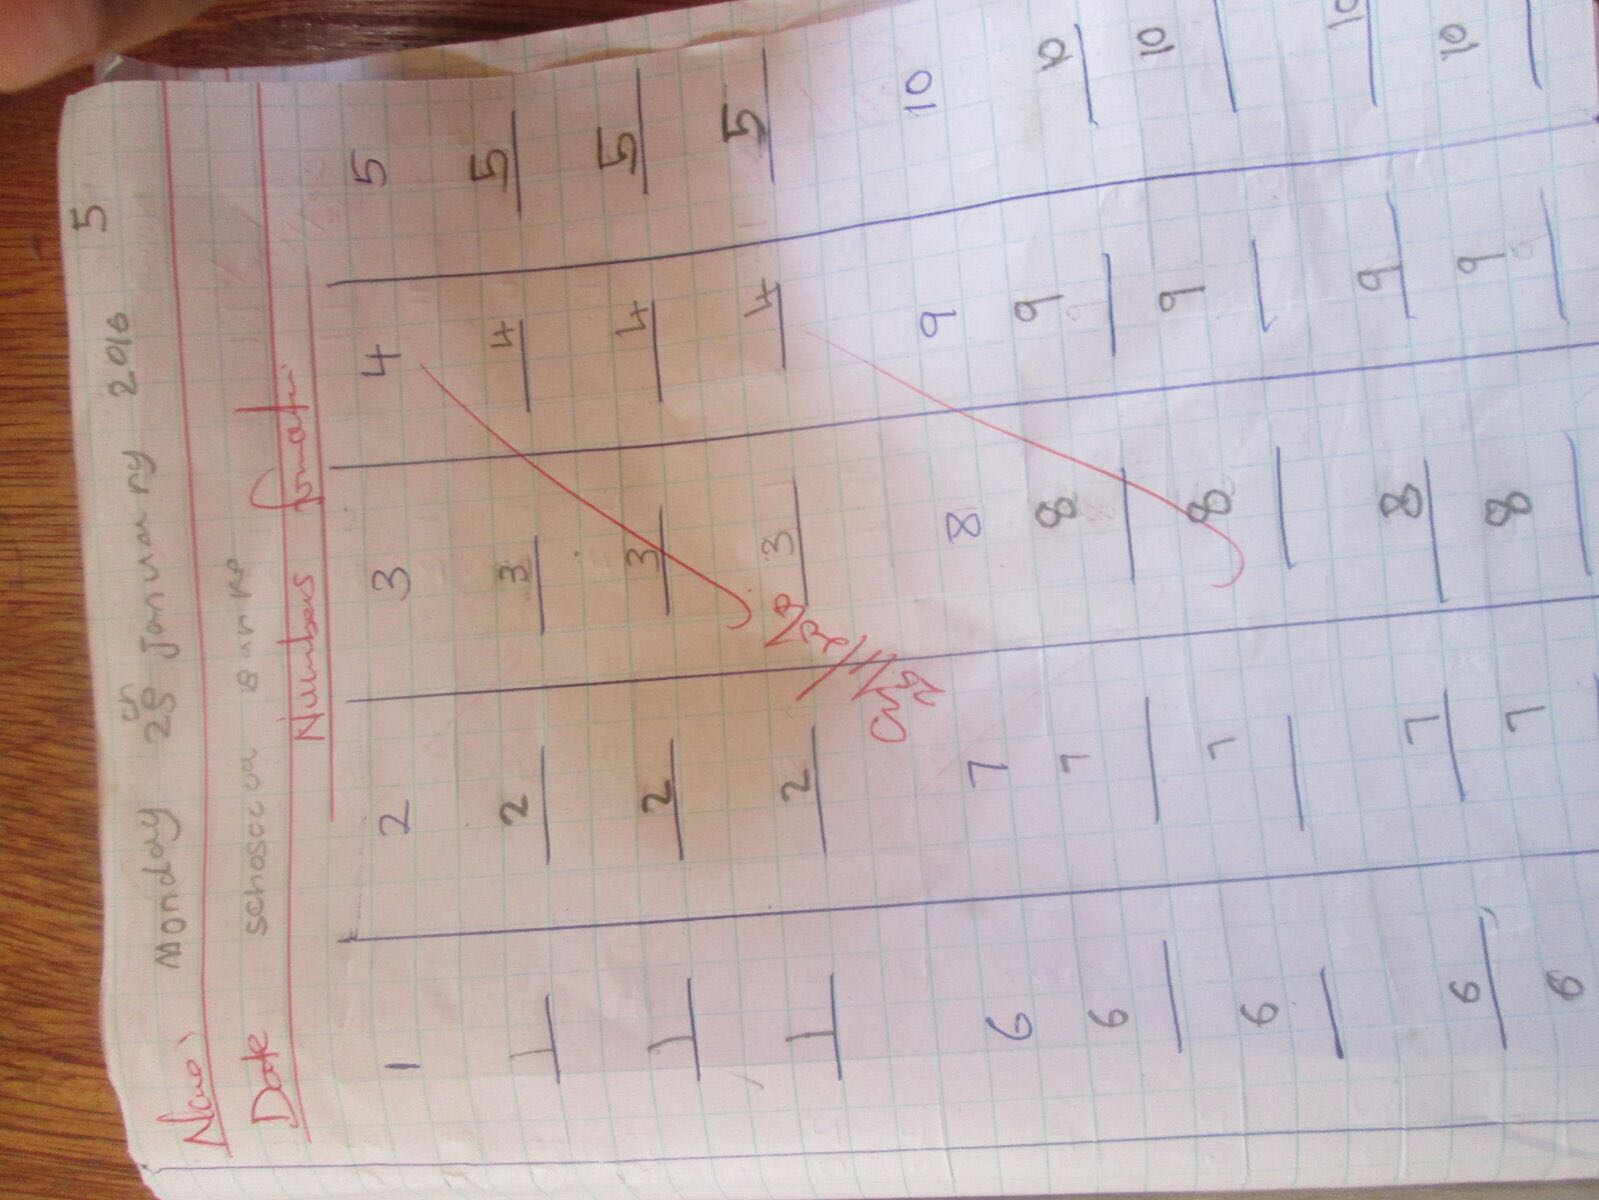 5
Name: Monday 25th January 2016
Date
Numbers formation
1 2 3 4 5
1 2 3 4 5
1 2 3 4 5
1 2 3 4 5
6 7 8 9 10
6 7 8 9 10
6 7 8 9 10
6 7 8 9 10
6 7 8 9 10